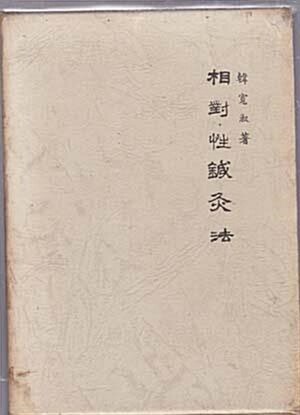 韓寬叔著
相對·性鍼灸法